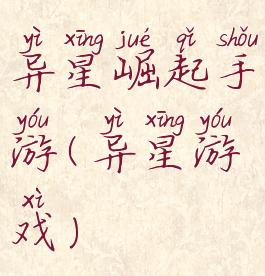 yì xīng jué qǐ shǒu
异星崛起手
yóu yì xīng yóu
游(异星游
xì
戏)